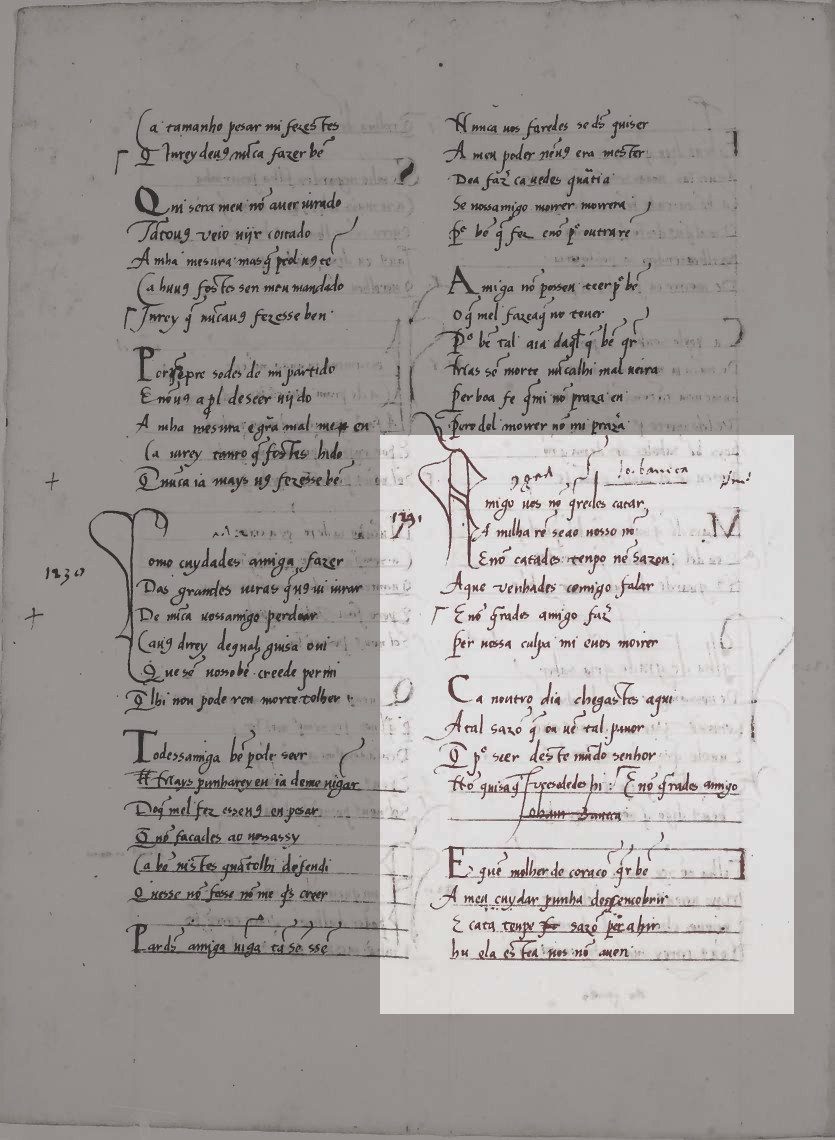 Ca tamanho pesar mi fezestes
Q̃ Iurey deu9 nũca fazer bẽ
Qui sera meu nõ auer uirado
Tãtou9 veio uijr coitado
A mha mesura mas q̃
Ca huu9 fostes sen meu mandado
Iurey q̃ nũcau9 fezesse ben
Por sẽpre sodes de mi partido
E nõu9 a pl descer uijdo
A mha mesura e g̃ra mal me en
Ca iurey tanto q̃ fostes hido
Q̃ nũca ia mays u9 fezesse bẽ
1230
Como cuydades amiga fazer
Das grandes iuras q̃u9 ui iurar
De nũca uossamigo perdoar
Cau9 direy de qual guisa oui
Que sẽ uossobẽ creede per mi
Q̃ lhi non pode ren morte tolher
Todessamiga bẽ pode seer
Mays punharey en ia deme uĩgar
Do q̃ mel fez en pesar
Q̃ nõ façades ao uossassy
Ca bẽ uistes quãtolhi defendi
Quesse nõ fosse nõ me q̃s creer
Pardš amiga uĩga tã sẽ
Nunca uos faredes se dš quiser
A meu poder nẽu9 era mester
De a faz̃ ca uedes quãtia
Se uossamigo morrer morreria
Pº bẽ q̃ fez e nõ pº outra rẽ
Amiga nõ possen teer pº bẽ
O q̃ mel faz e a q̃no teuer
Pº bẽ tal aia daq̃l q̃ bẽ q̃r
Mais sẽ morte nũcalhi mal ueira
Per boa fe q̃mi nõ praza en
Pero del morrer nõ mi praz̃a
1231
Amigo uos nõ q̃redes catar
A nulha rẽ se ao uosso nõ
E nõ catades tenpo nẽ sazon
A que venhades comigo falar
E nõ q̃rades amigo faz̃
Per uossa culpa mi e uos morrer
Ca noutro dia chegastes aqui
A tal sazõ q̃ ou uẽ tal pauor
Q̃ pº seer deste mũdo senhor
Nõ quisa q̃ fuessedes hi: E nõ q̃rades amigo
E quẽ molher de coraçõ q̃r bẽ
A meu cuydar punha dess encobrir
E cata tenpo sazõ pera hir
hu ela esteu uos nõ auen